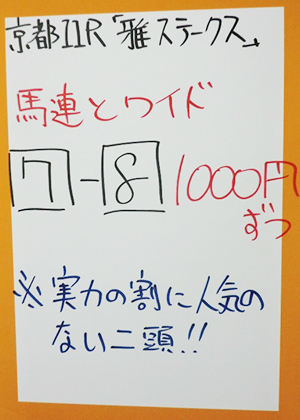 京都11R「雅ステークス」
馬連とワイド
7-8 1000円
ずつ
※実力の割に人気の
ない二頭!!